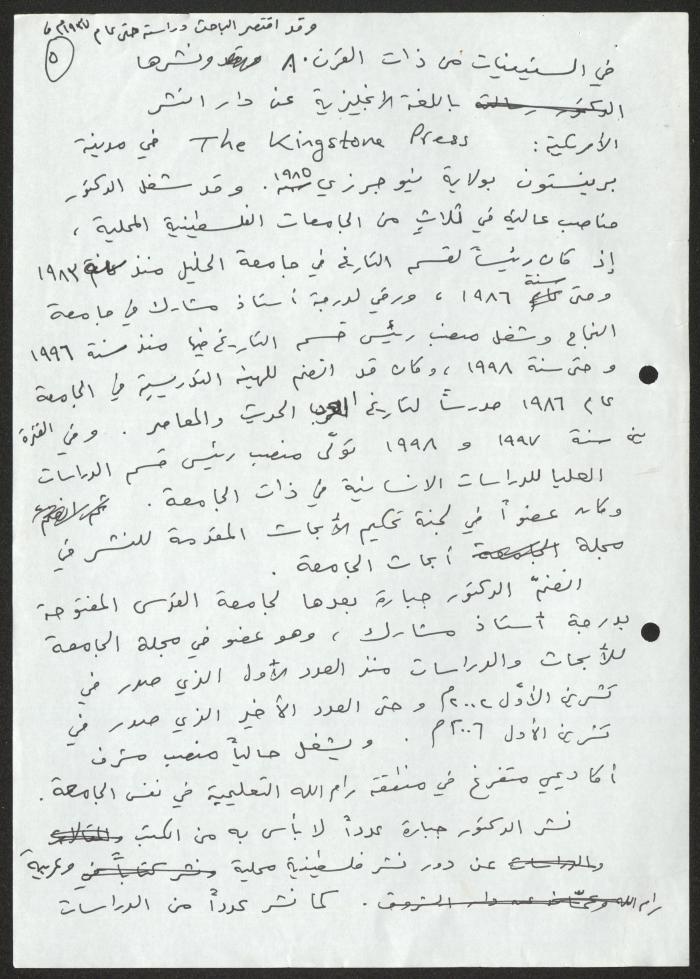 وقد اقتصر الباحث دراسة حتى عام ١٩٣٧م
٥
في الستينيات من ذات القرن. ٨٠ ونشرها
باللغة الانجليزية عن دار النشر
الأمريكية: The Kingstone Press في مدينة
برينستون بولاية نيوجرزي سنة ١٩٨٥. وقد شغل الدكتور
مناصب عالية في ثلاثٍ من الجامعات الفلسطينية المحلية،
إذ كان رئيساً لقسم التاريخ في جامعة الخليل منذ ١٩٨٣
وحتى سنة ١٩٨٦، ورقي لدرجة أستاذ مشارك في جامعة
النجاح وشغل منصب رئيس قسم التاريخ فيها منذ سنة ١٩٩٦
وحتى سنة ١٩٩٨، وكان قد انضم للهيئة التدريسية في الجامعة
عام ١٩٨٦ مدرساً لتاريخ العرب الحديث والمعاصر. وفي الفترة
بين سنة ١٩٩٧ و ١٩٩٨ تولّى منصب رئيس قسم الدراسات
العليا للدراسات الانسانية في ذات الجامعة.
وكان عضواً في لجنة تحكيم الأبحاث المقدمة للنشر في
مجلة الجامعة أبحاث الجامعة.
انضمّ الدكتور جبارة بعدها لجامعة القدس المفتوحة
بدرجة أستاذ مشارك، وهو عضو في مجلة الجامعة
للأبحاث والدراسات منذ العدد الأول الذي صدر في
تشرين الأوّل ٢٠٠٢م وحتى العدد الأخير الذي صدر في
تشرين الأول ٢٠٠٦م. ويشغل حالياً منصب مشرف
أكاديمي متفرغ في منطقة رام الله التعليمية في نفس الجامعة.
نشر الدكتور جبارة عدداً لا بأس به من الكتب والمقالات
والدراسات عن دور نشر فلسطينية محلية ونشر كتاباً في وعربية
رام الله وعمّان عن دار الشروق. كما نشر عدداً من الدراسات